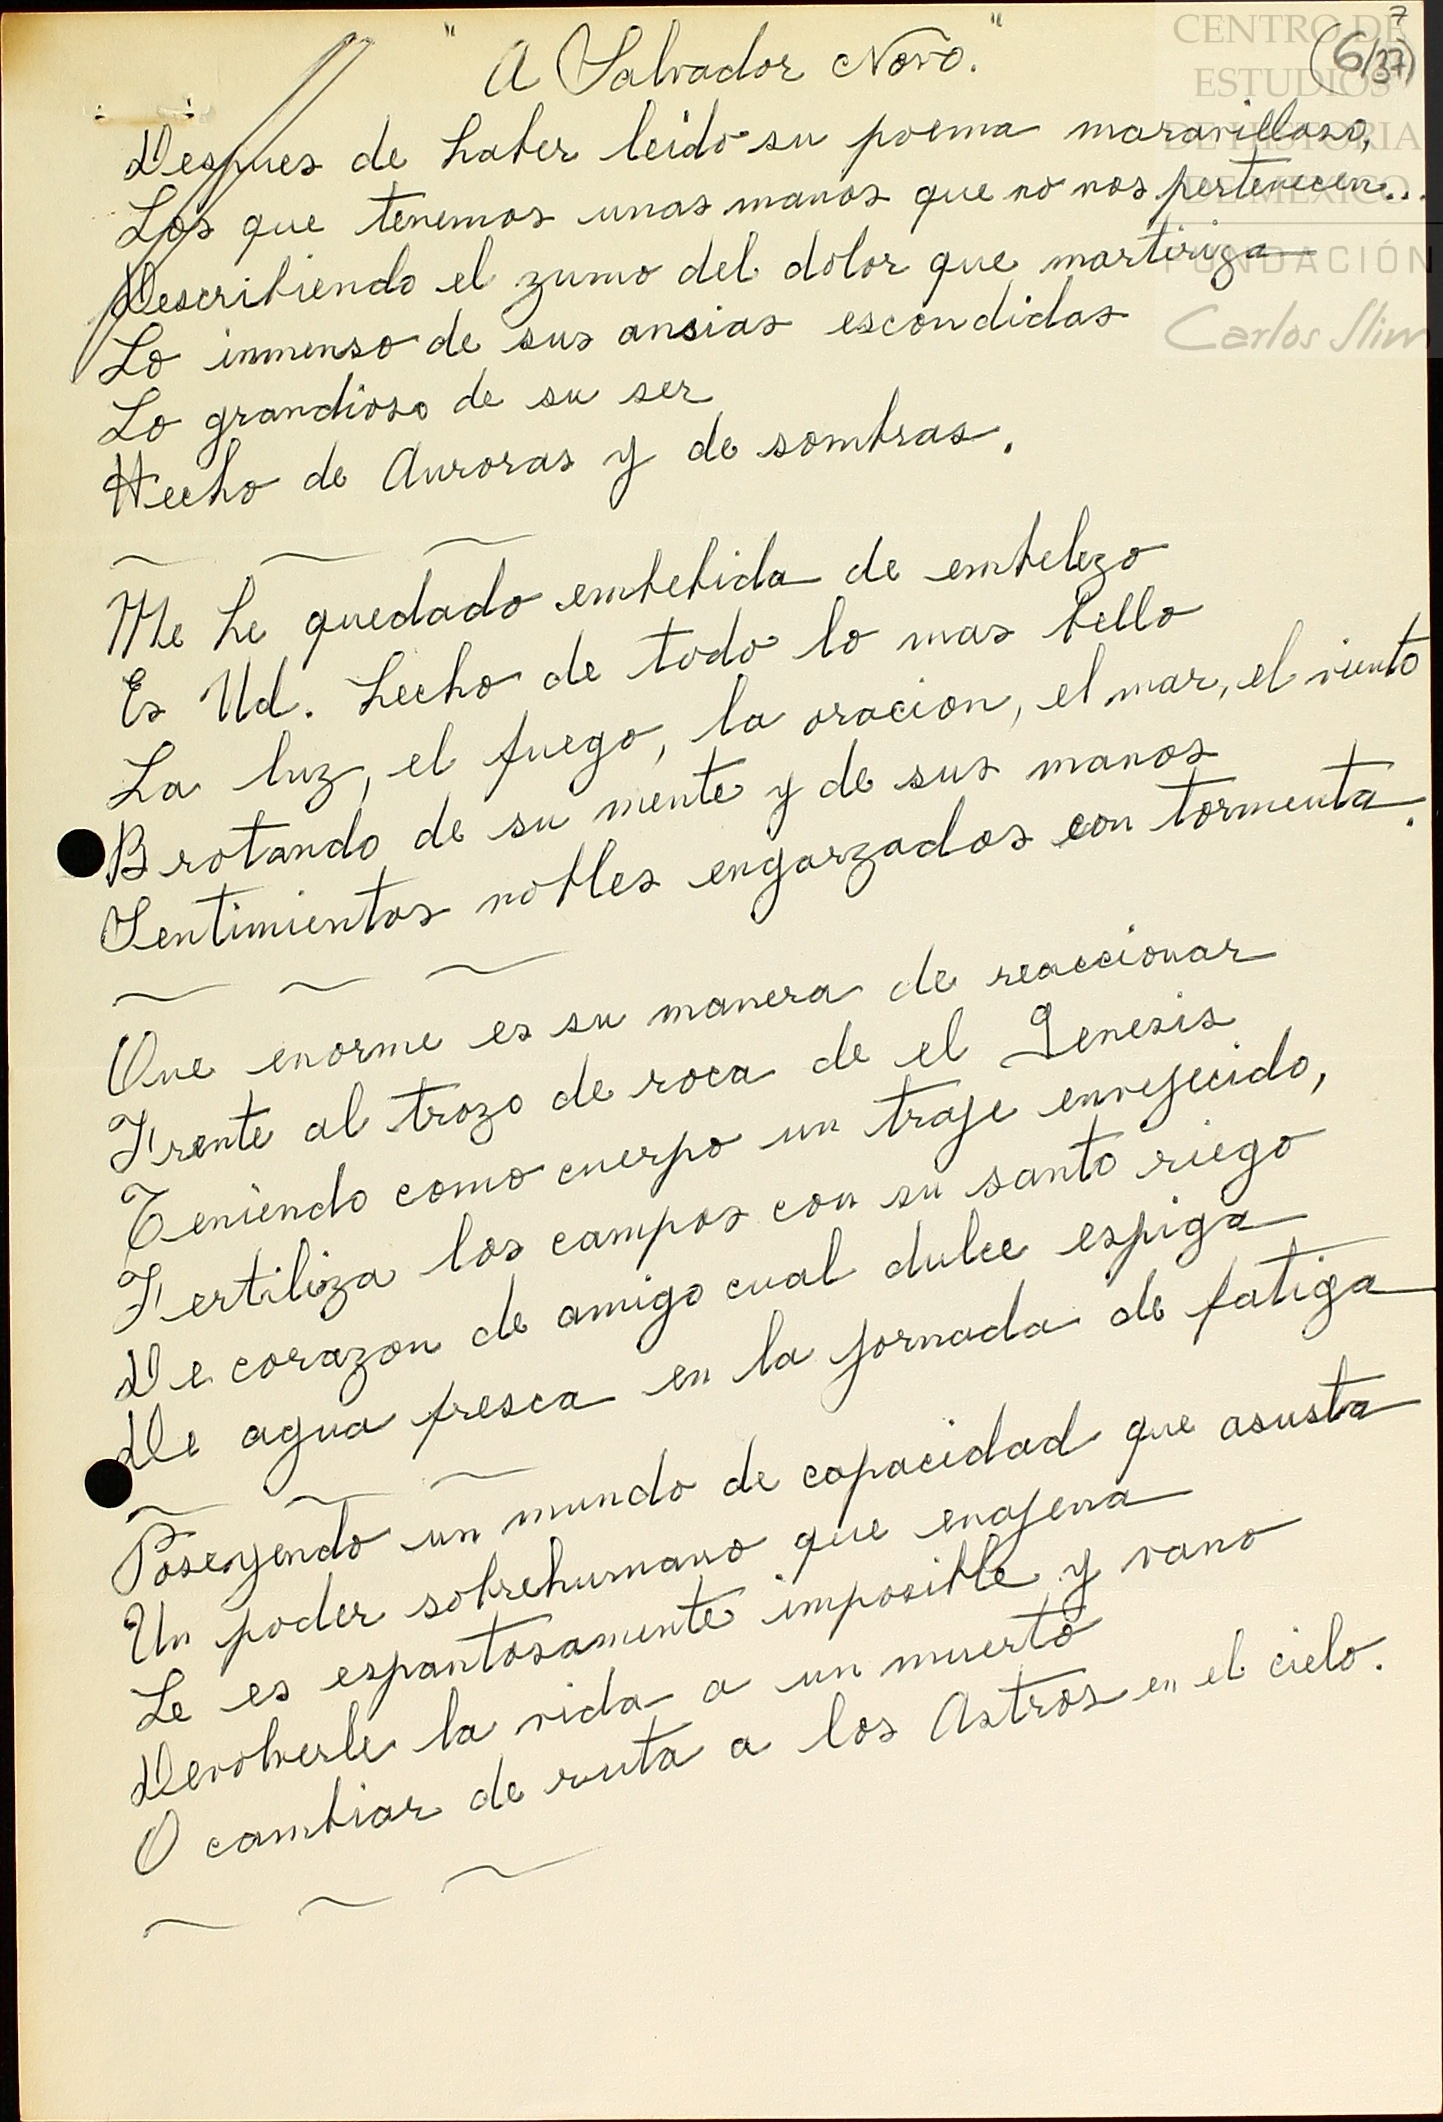 7
(6/37)
CENTRO DE
ESTUDIOS
DE HISTORIA
DE MEXICO
FUNDACIÓN
Carlos Slim
"A Salvador Novo."
Despues de haber leido su poema maravilloso,
Los que tenemos unas manos que no nos pertenecen...
Describiendo el zumo del dolor que martiriza
Lo inmenso de sus ansias escondidas
Lo grandioso de su ser
Hecho de Auroras y de sombras.
Me he quedado embebida de embelezo
Es Ud. hecho de todo lo mas bello
La luz, el fuego, la oracion, el mar, el viento
Brotando de su mente y de sus manos
Sentimientos nobles engarzados con tormenta.
Que enorme es su manera de reaccionar
Frente al trozo de roca de el Genesis
Teniendo como cuerpo un traje envejecido,
Fertiliza los campos con su santo riego
De corazon de amigo cual dulce espiga
De agua fresca en la jornada de fatiga
Poseyendo un mundo de capacidad que asusta
Un poder sobrehumano que enajena
Le es espantosamente imposible y vano
Devolverle la vida a un muerto
O cambiar de ruta a los Astros en el cielo.